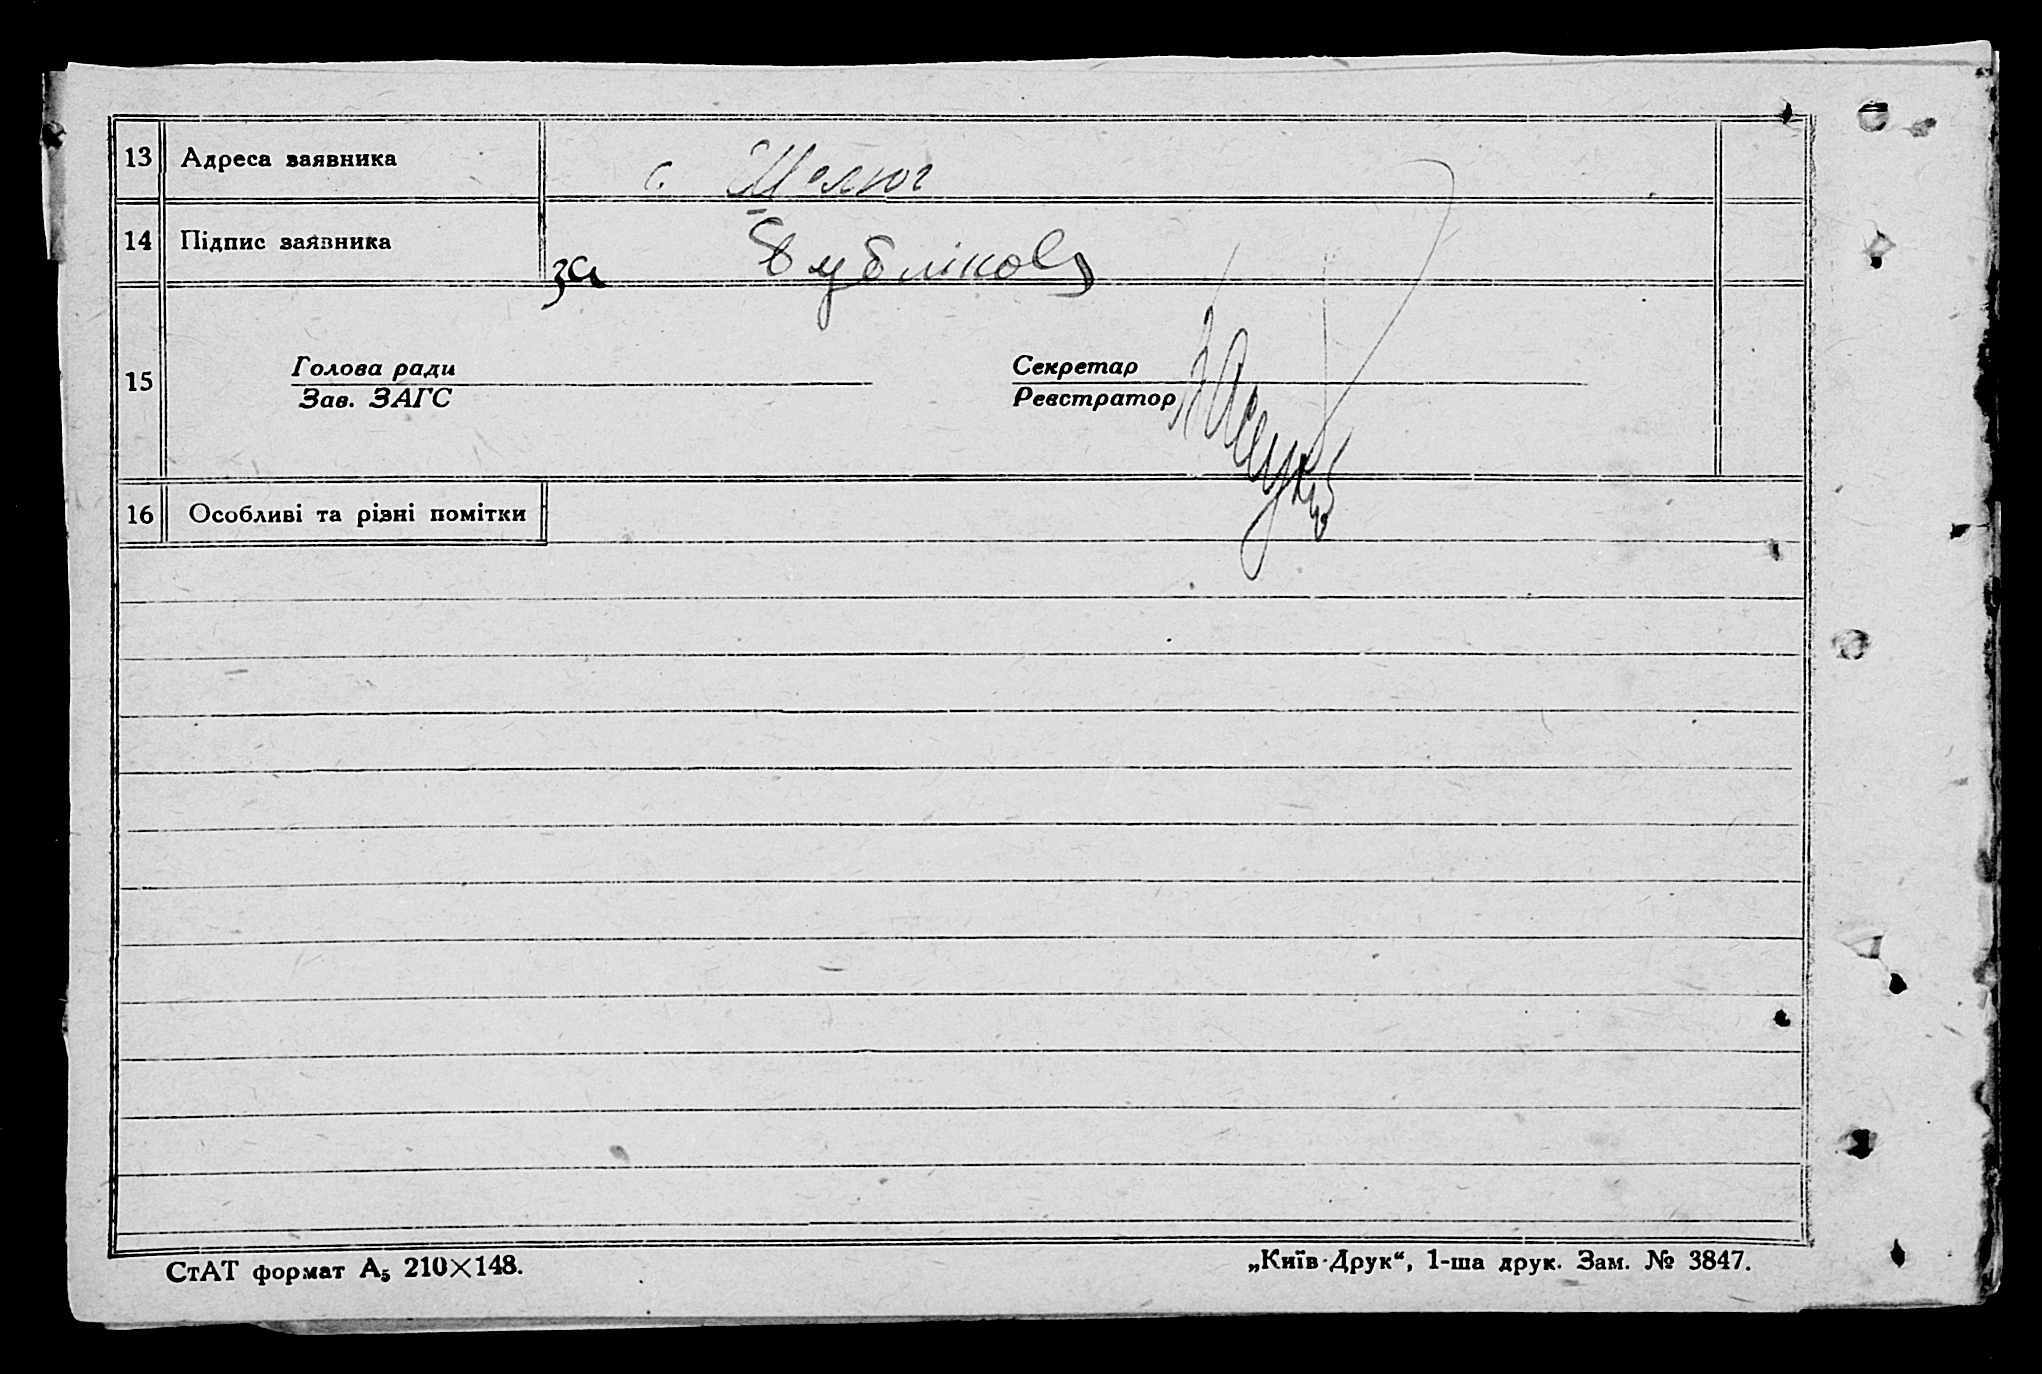 13 Адреса заявника с.
14 Підпис заявника за Бубликова
15 Голова ради Секретар
Зав. ЗАГС Реєстратор
16 Особливі та різні помітки
СтАТ формат А₅ 210×148. „Київ-Друк“, 1-ша друк. Зам. № 3847.